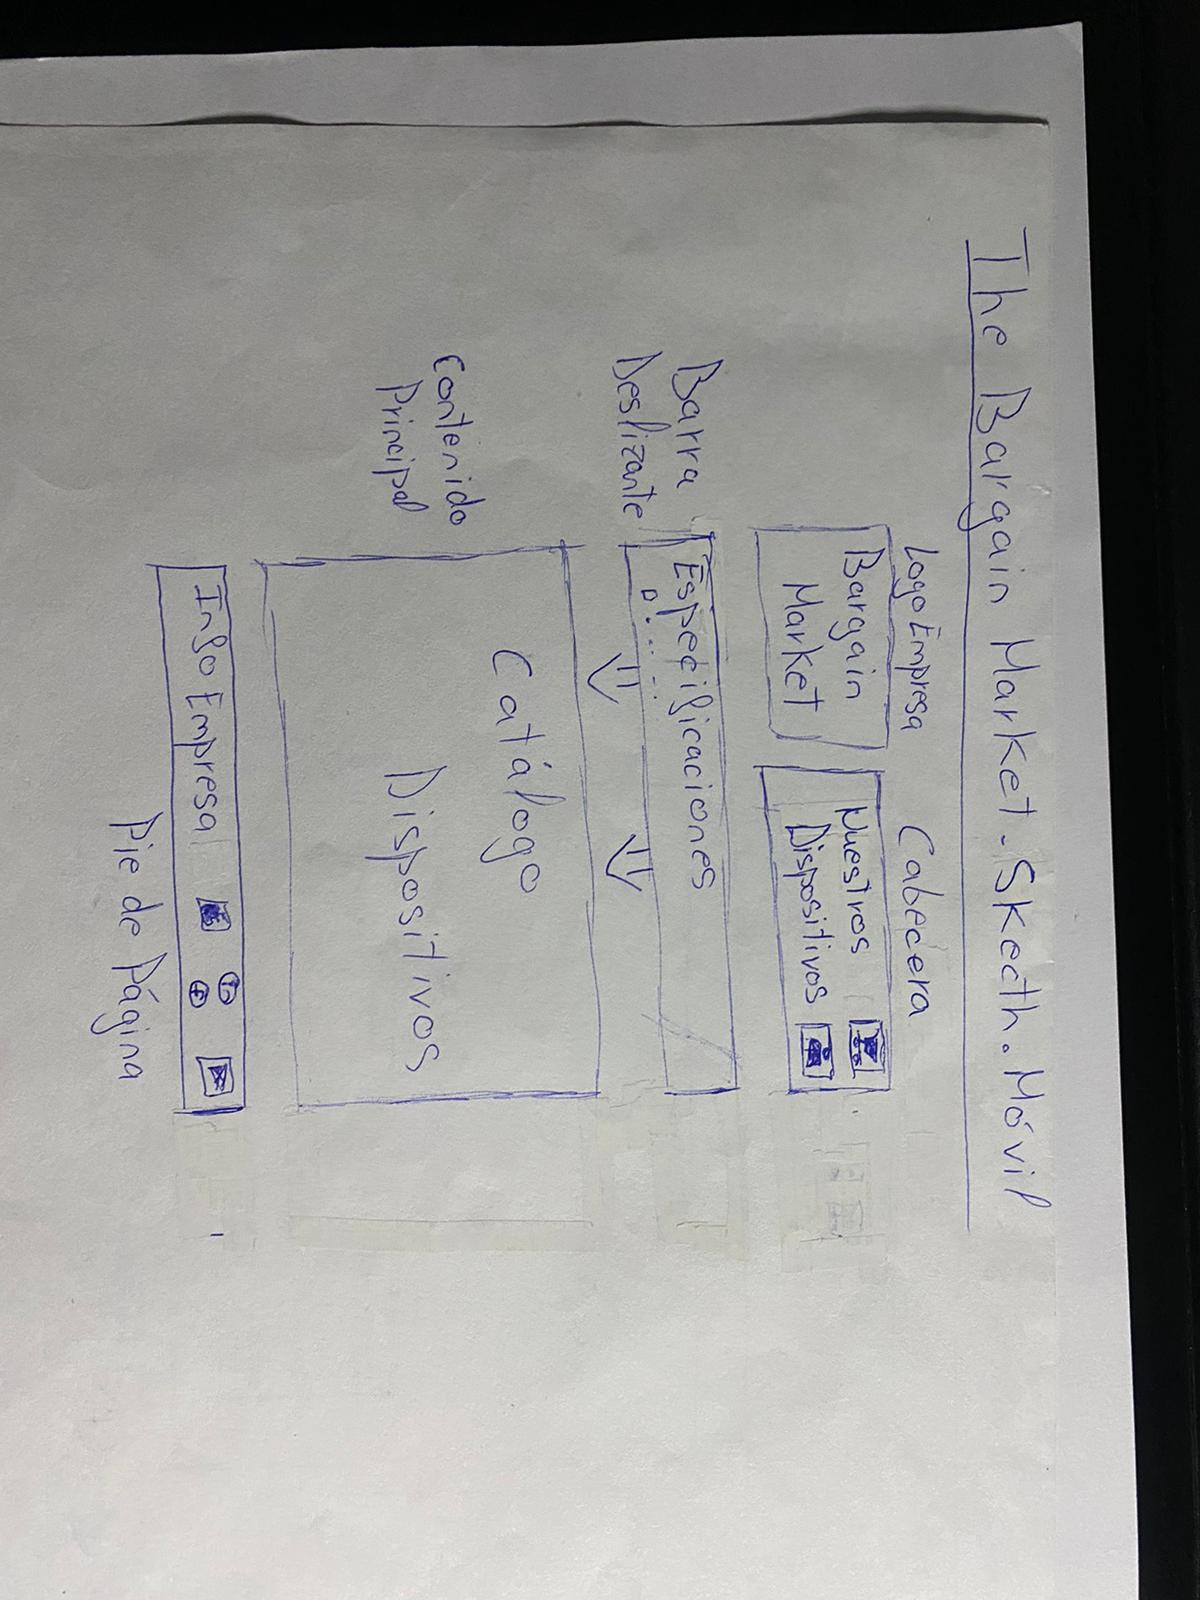 The Bargain Market. Skecth. Móvil
Logo Empresa
Cabecera
Bargain
Market
Nuestros
Dispositivos
Barra
Deslizante
Especificaciones
Contenido
Principal
Catálogo
Dispositivos
Info Empresa
Pie de Página